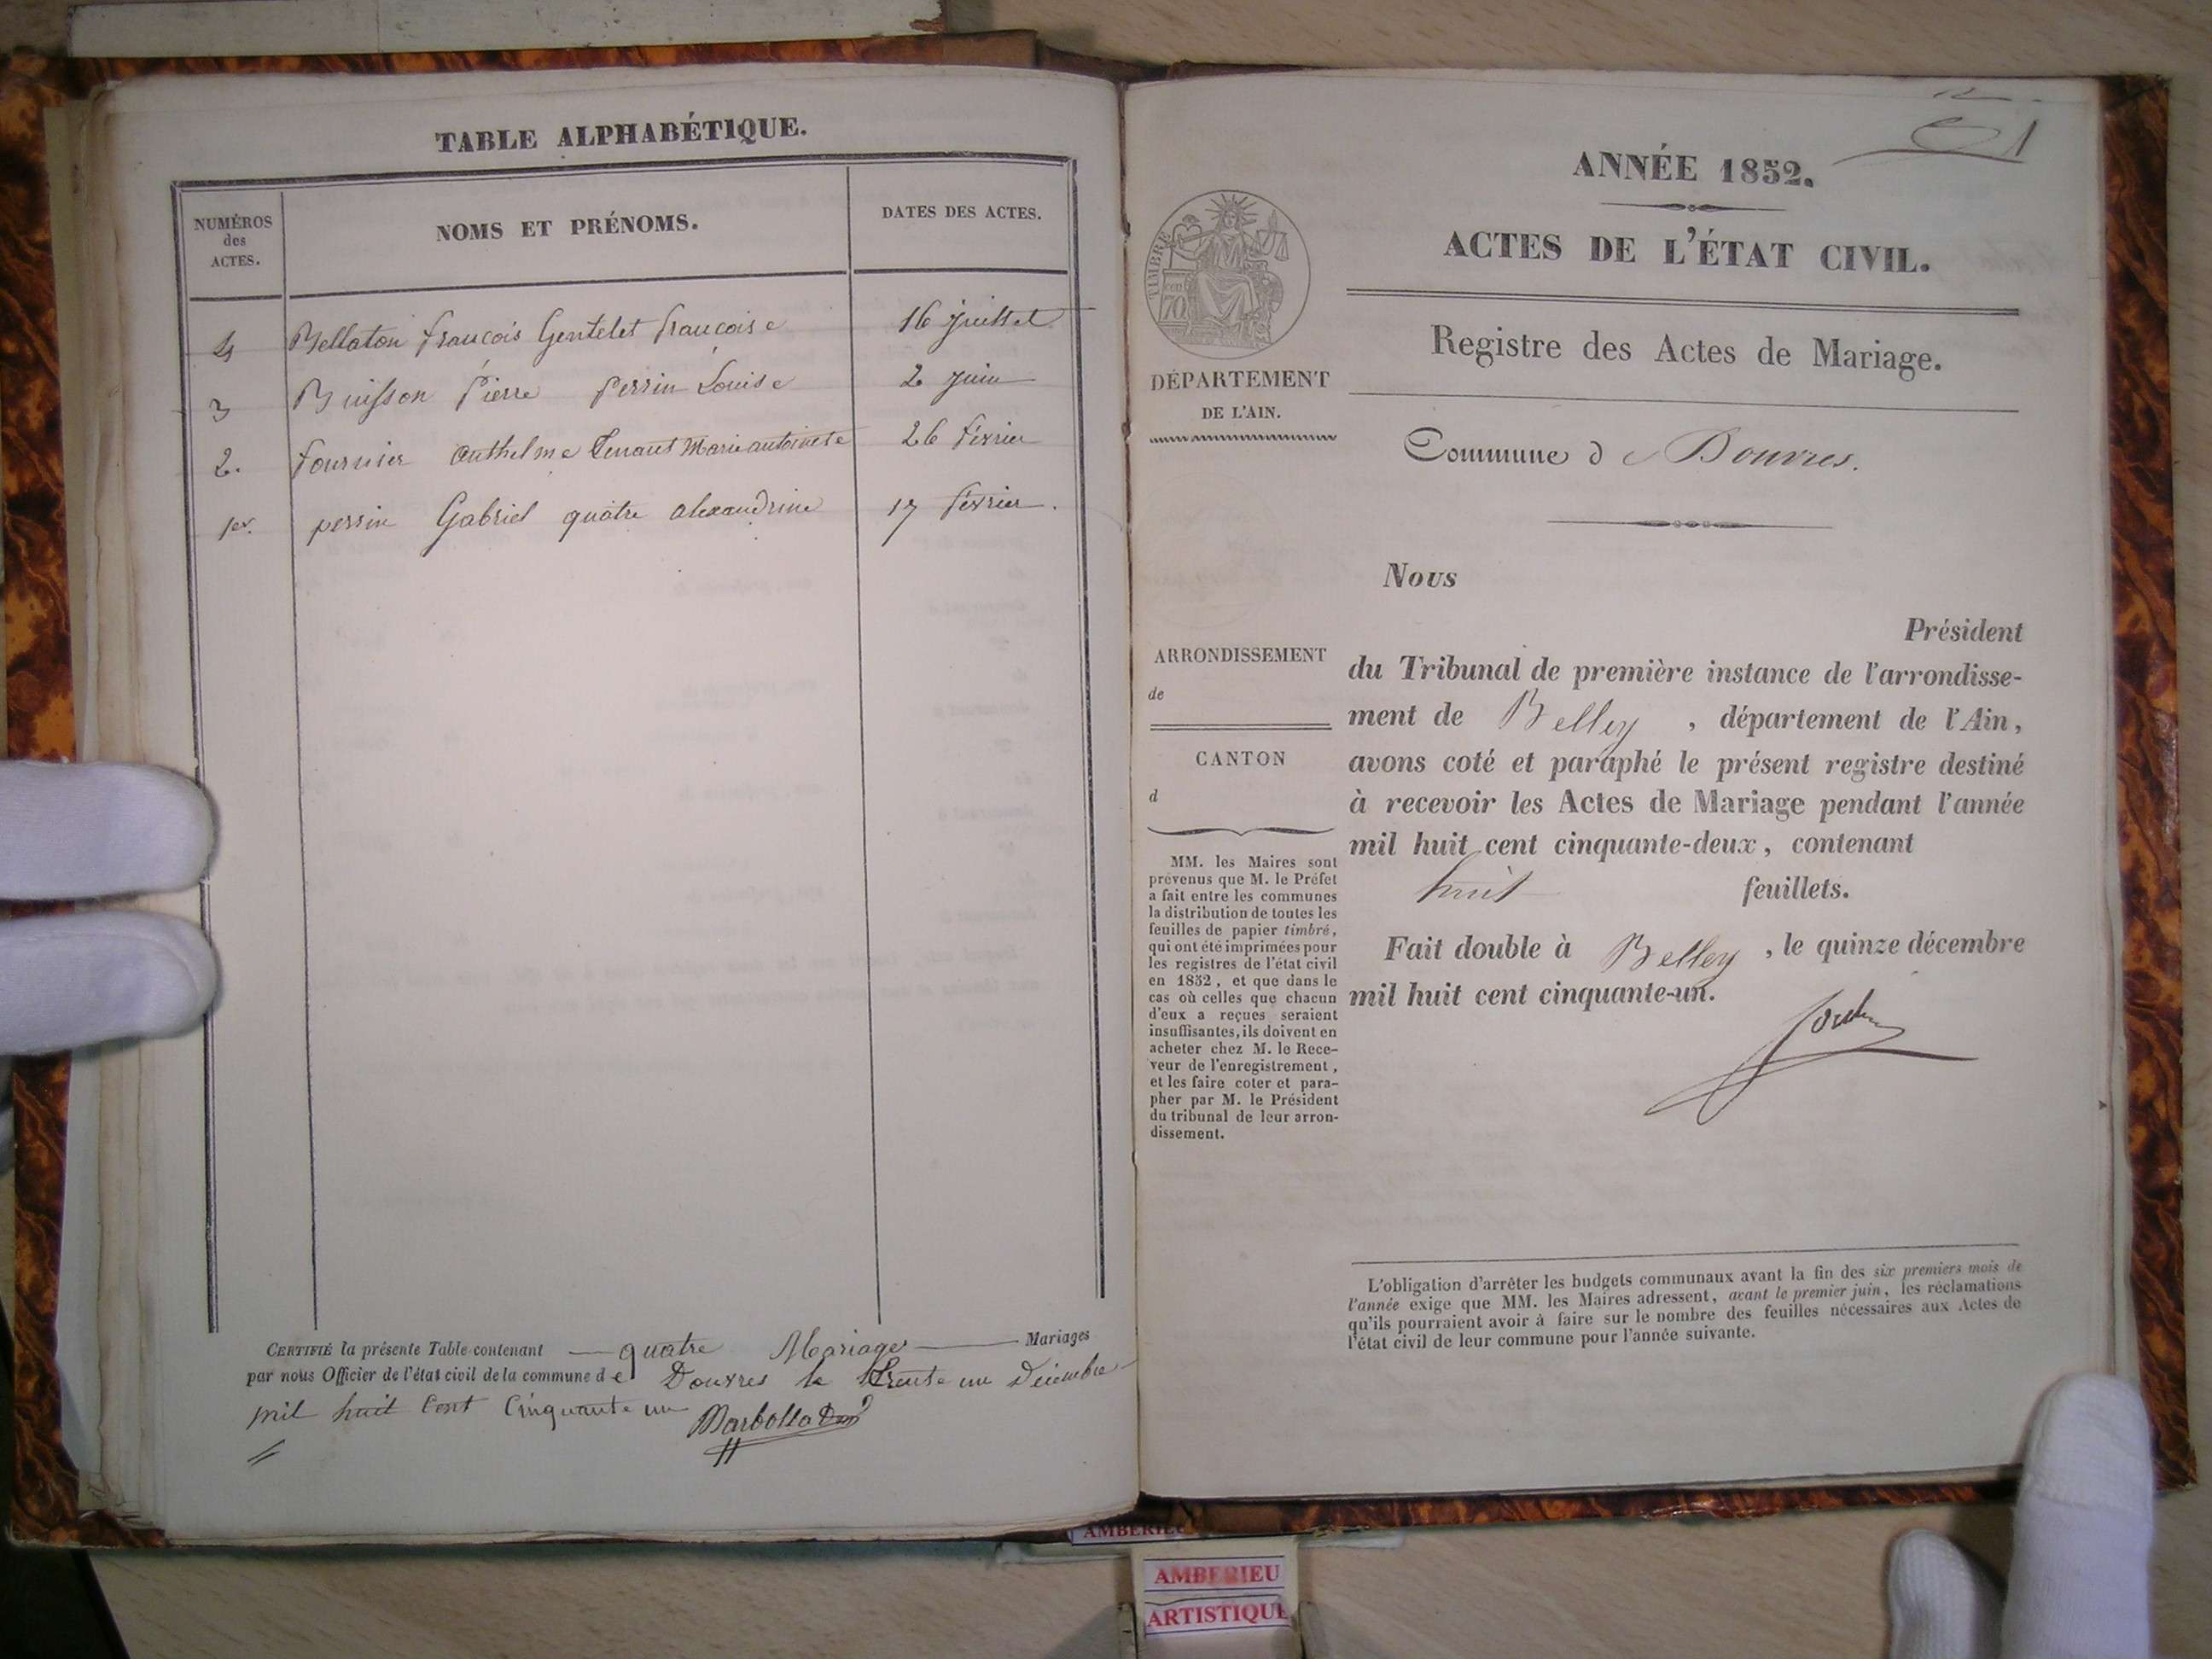 TABLE ALPHABÉTIQUE.
NUMÉROS
des
ACTES.
NOMS ET PRÉNOMS.
DATES DES ACTES.
4 Bellaton françois Gentelet françoise 16 juillet
3 Buisson Pierre perrin Louise 2 juin
2. fournier anthelme Tenant Marie antoinete 26 février
1er. perrin Gabriel quatre alexandrine 17 février.
CERTIFIÉ la présente Table contenant quatre Mariage Mariages
par nous Officier de l'état civil de la commune de Douvres le trente un Décembre
mil huit Cent Cinquante un
ANNÉE 1852.
1
ACTES DE L'ÉTAT CIVIL.
Registre des Actes de Mariage.
Commune de Douvres.
TIMBRE
70
DÉPARTEMENT
DE L'AIN.
ARRONDISSEMENT
de
CANTON
d
MM. les Maires sont
prévenus que M. le Préfet
a fait entre les communes
la distribution de toutes les
feuilles de papier timbré,
qui ont été imprimées pour
les registres de l'état civil
en 1852, et que dans le
cas où celles que chacun
d'eux a reçues seraient
insuffisantes, ils doivent en
acheter chez M. le Rece-
veur de l'enregistrement,
et les faire coter et para-
pher par M. le Président
du tribunal de leur arron-
dissement.
Nous
Président
du Tribunal de première instance de l'arrondisse-
ment de Belley, département de l'Ain,
avons coté et paraphé le présent registre destiné
à recevoir les Actes de Mariage pendant l'année
mil huit cent cinquante-deux, contenant
huit feuillets.
Fait double à Belley, le quinze décembre
mil huit cent cinquante-un.
L'obligation d'arrêter les budgets communaux avant la fin des six premiers mois de
l'année exige que MM. les Maires adressent, avant le premier juin, les réclamations
qu'ils pourraient avoir à faire sur le nombre des feuilles nécessaires aux Actes de
l'état civil de leur commune pour l'année suivante.
AMBERIEU
AMBERIEU
ARTISTIQUE